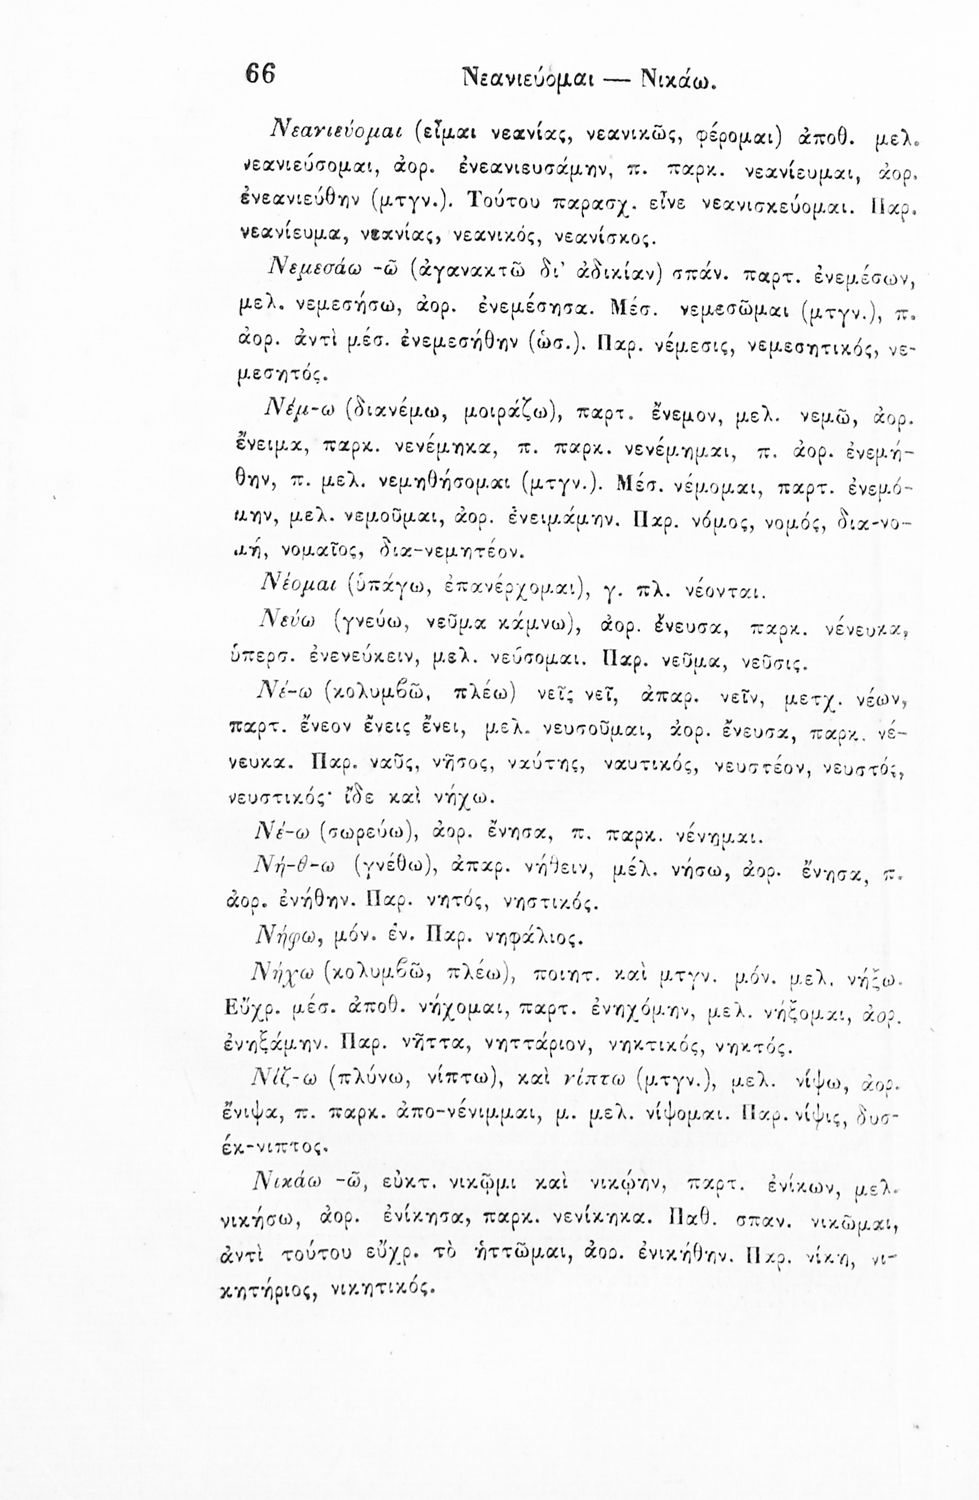 66
Νεανιεύομαι — Νικάω.
Νεανιεύομαι (εἶμαι νεανίας, νεανικῶς, φέρομαι) ἀποθ. μελ.
νεανιεύσομαι, ἀορ. ἐνεανιευσάμην, π. παρκ. νεανίευμαι, ἀορ.
ἐνεανιεύθην (μτγν.). Τούτου παρασχ. εἶνε νεανισκεύομαι. Παρ.
νεανίευμα, νεανίας, νεανικός, νεανίσκος.
Νεμεσάω -ῶ (ἀγανακτῶ δι’ ἀδικίαν) σπάν. παρτ. ἐνεμέσων,
μελ. νεμεσήσω, ἀορ. ἐνεμέσησα. Μέσ. νεμεσῶμαι (μτγν.), π.
ἀορ. ἀντὶ μέσ. ἐνεμεσήθην (ὡσ.). Παρ. νέμεσις, νεμεσητικός, νε-
μεσητός.
Νέμ-ω (διανέμω, μοιράζω), παρτ. ἔνεμον, μελ. νεμῶ, ἀορ.
ἔνειμα, παρκ. νενέμηκα, π. παρκ. νενέμημαι, π. ἀορ. ἐνεμή-
θην, π. μελ. νεμηθήσομαι (μτγν.). Μέσ. νέμομαι, παρτ. ἐνεμό-
μην, μελ. νεμοῦμαι, ἀορ. ἐνειμάμην. Παρ. νόμος, νομός, δια-νο-
μή, νομαῖος, δια-νεμητέον.
Νέομαι (ὑπάγω, ἐπανέρχομαι), γ. πλ. νέονται.
Νεύω (γνεύω, νεῦμα κάμνω), ἀορ. ἔνευσα, παρκ. νένευκα,
ὑπερσ. ἐνενεύκειν, μελ. νεύσομαι. Παρ. νεῦμα, νεῦσις.
Νέ-ω (κολυμβῶ, πλέω) νεῖς νεῖ, ἀπαρ. νεῖν, μετχ. νέων,
παρτ. ἔνεον ἔνεις ἔνει, μελ. νευσοῦμαι, ἀορ. ἔνευσα, παρκ. νέ-
νευκα. Παρ. ναῦς, νῆσος, ναύτης, ναυτικός, νευστέον, νευστός,
νευστικός· ἴδε καὶ νήχω.
Νέ-ω (σωρεύω), ἀορ. ἔνησα, π. παρκ. νένημαι.
Νή-θ-ω (γνέθω), ἀπαρ. νήθειν, μέλ. νήσω, ἀορ. ἔνησα, π.
ἀορ. ἐνήθην. Παρ. νητός, νηστικός.
Νήφω, μόν. ἐν. Παρ. νηφάλιος.
Νήχω (κολυμβῶ, πλέω), ποιητ. καὶ μτγν. μόν. μελ. νήξω.
Εὔχρ. μέσ. ἀποθ. νήχομαι, παρτ. ἐνηχόμην, μελ. νήξομαι, ἀορ.
ἐνηξάμην. Παρ. νῆττα, νηττάριον, νηκτικός, νηκτός.
Νίζ-ω (πλύνω, νίπτω), καὶ νίπτω (μτγν.), μελ. νίψω, ἀορ.
ἔνιψα, π. παρκ. ἀπο-νένιμμαι, μ. μελ. νίψομαι. Παρ. νίψις, δυσ-
έκ-νιπτος.
Νικάω -ῶ, εὐκτ. νικῷμι καὶ νικῴην, παρτ. ἐνίκων, μελ.
νικήσω, ἀορ. ἐνίκησα, παρκ. νενίκηκα. Παθ. σπαν. νικῶμαι,
ἀντὶ τούτου εὔχρ. τὸ ἡττῶμαι, ἀορ. ἐνικήθην. Παρ. νίκη, νι-
κητήριος, νικητικός.